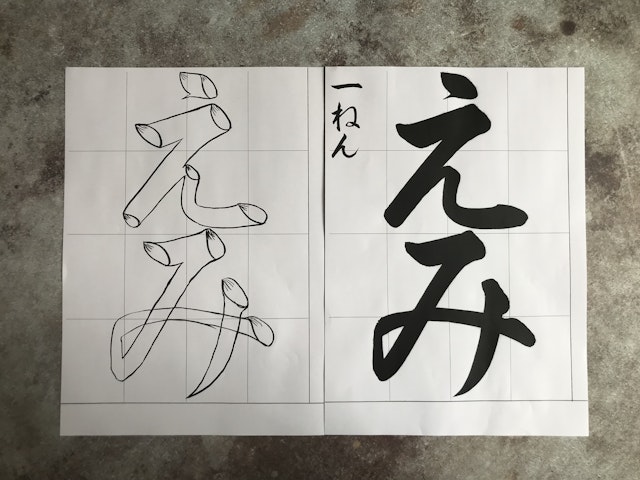 えみ
一ねん
えみ